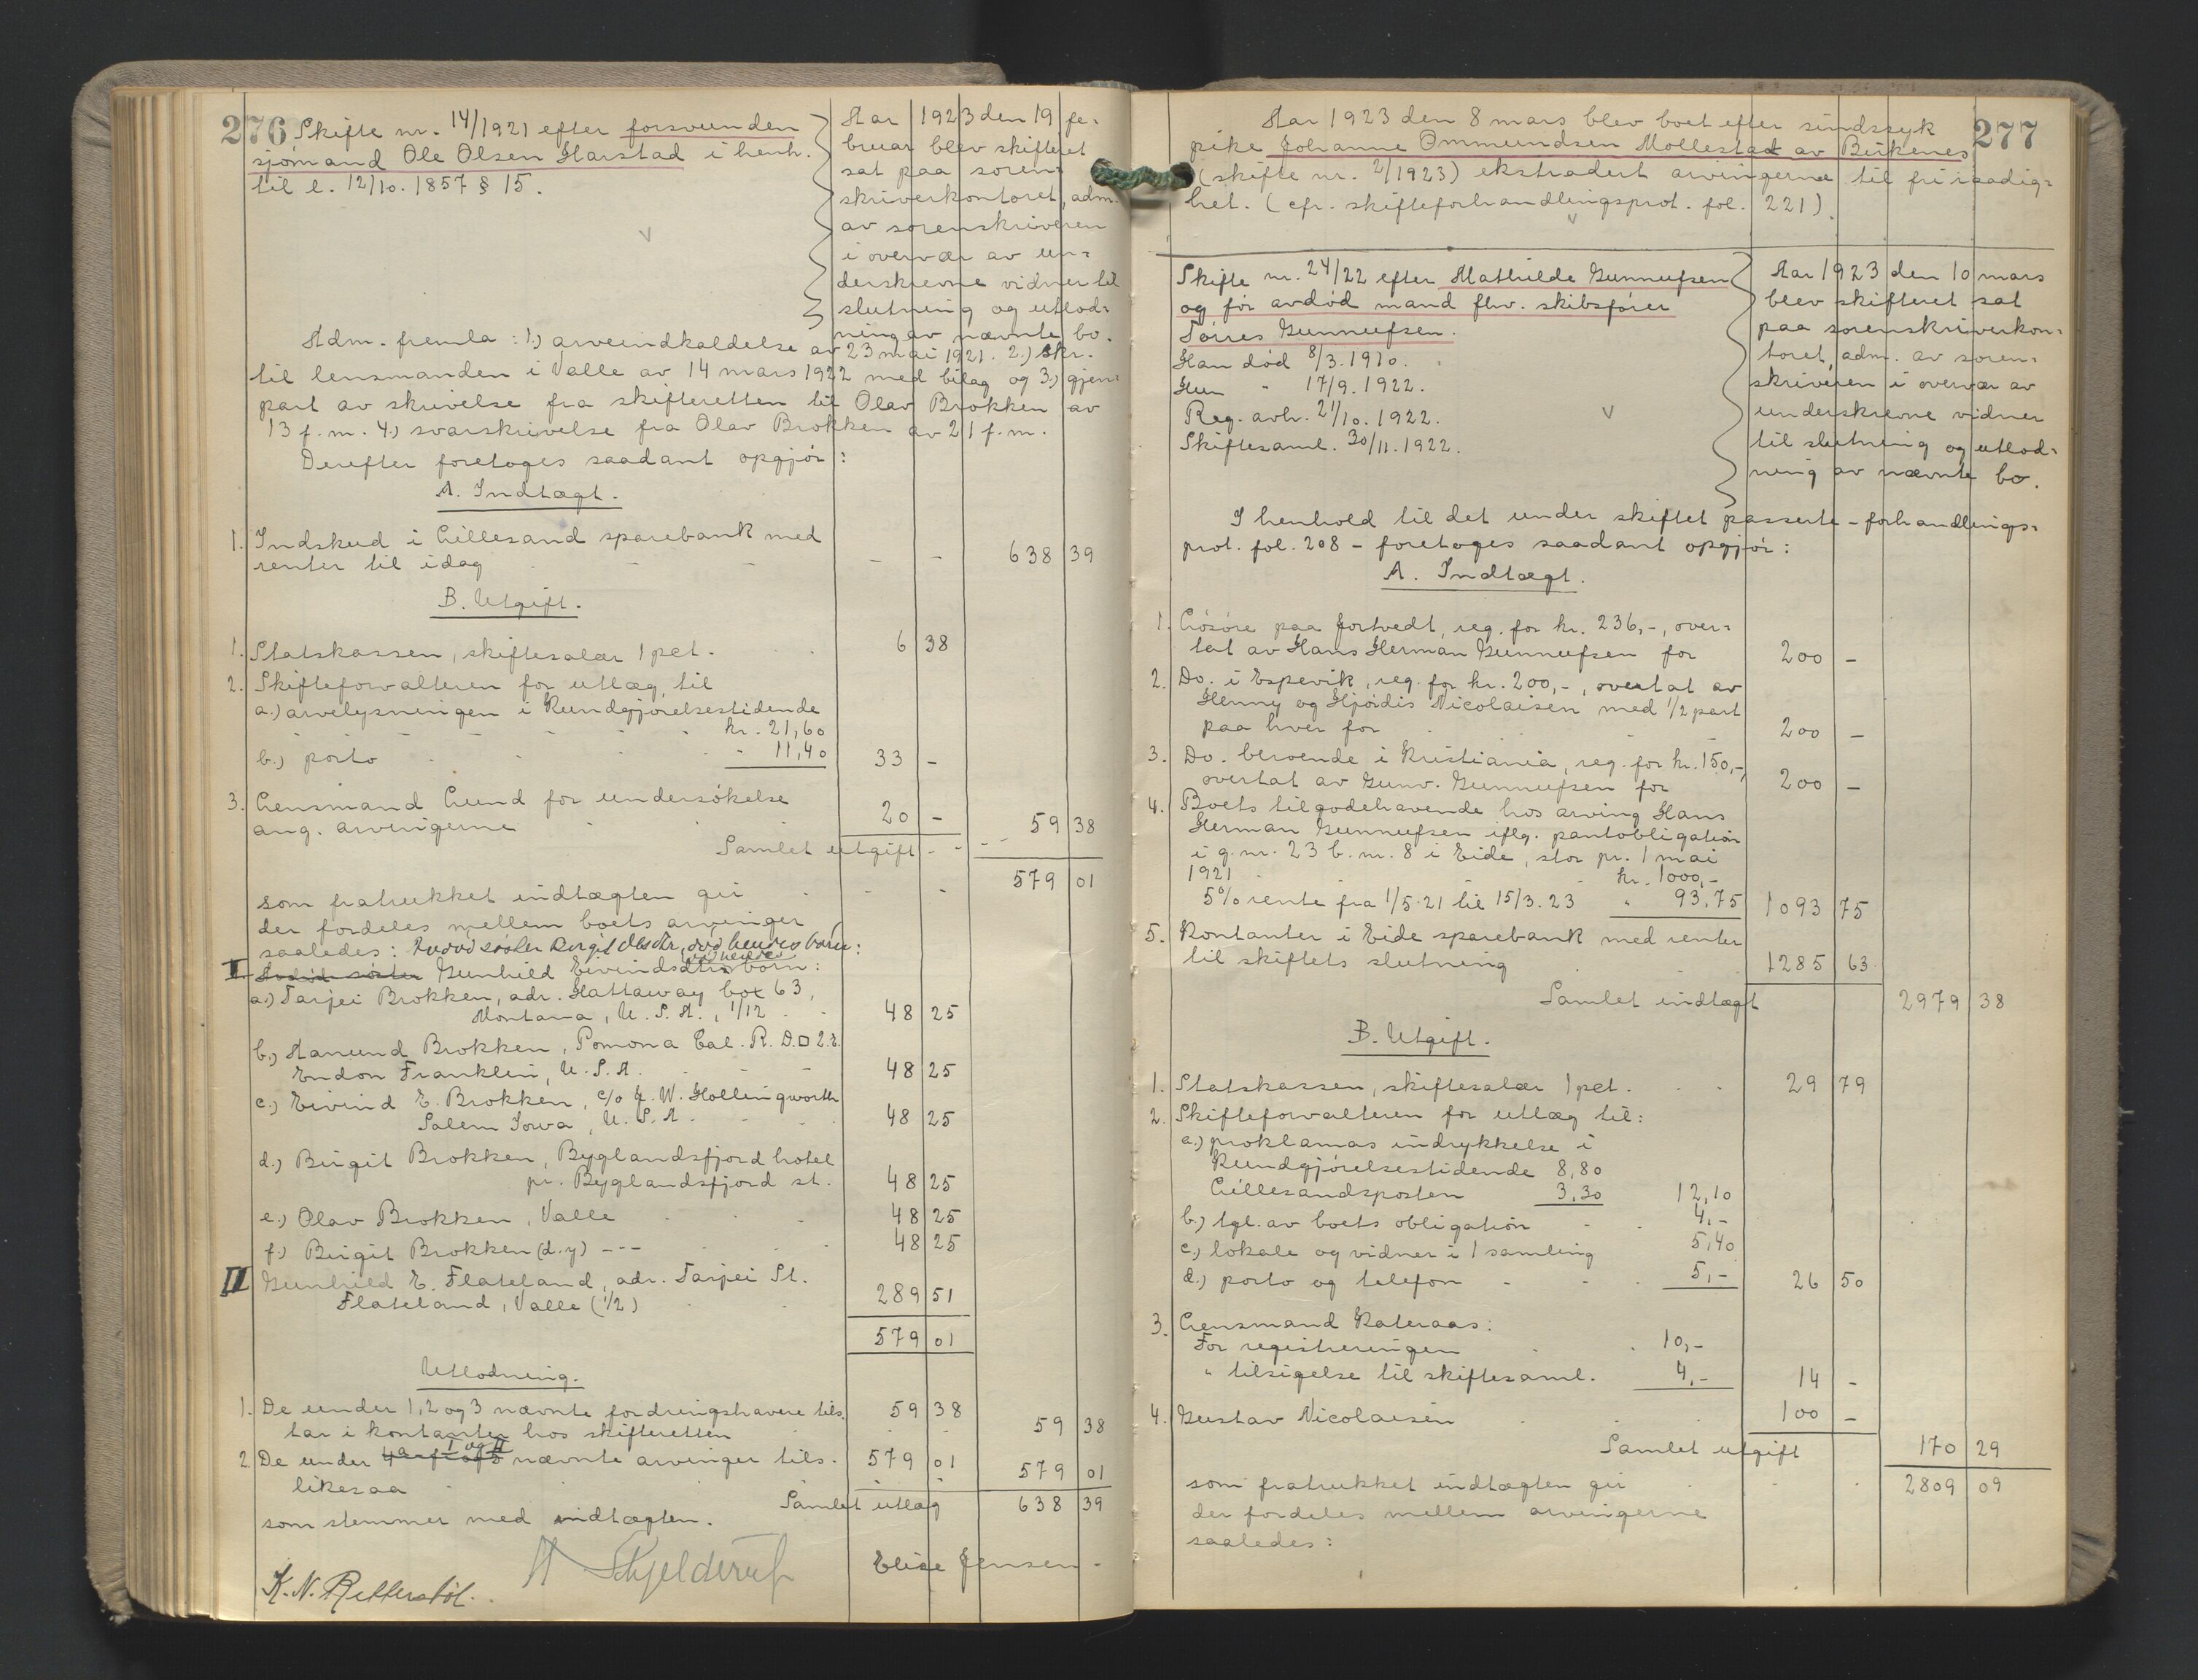 276
Skifte nr. 14/1921 efter forsvunden
sjømand Ole Olsen Harstad i henh.
til l. 12/10. 1857 § 15.
Aar 1923 den 19 fe-
bruar blev skifteret
sat paa soren-
skriverkontoret, adm.
av sorenskriveren
i overvær av un-
derskrevne vidner til
slutning og utlod-
ning av nævnte bo.
Adm. fremla: 1.) arveindkaldelse av 23 mai 1921. 2.) skr.
til lensmanden i Valle av 14 mars 1922 med bilag og 3.) gjen-
part av skrivelse fra skifteretten til Olav Brokken av
13 f.m. 4.) svarskrivelse fra Olav Brokken av 21 f.m.
Derefter foretoges saadant opgjør:
A. Indtægt.
1. Indskud i Lillesand sparebank med
renter til idag - - 638 39
B. Utgift.
1. Statskassen, skiftesalær 1 pct. 6 38
2. Skifteforvalteren for utlæg til
a.) arvelysningen i Kundgjørelsestidende
kr. 21,60
b.) porto - 11,40 33 -
3. Lensmand Lund for undersøkelse
ang. arvingerne 20 -
Samlet utgift - - 59 38
som fratrukket indtægten gir - - 579 01
der fordeles mellem boets arvinger
saaledes: Avdød søster Birgit Olsdtr, død hendes børn:
I. Avdød søster Gunhild Eivindsdtrs børn:
a.) Tarjei Brokken, adr. Hattaway box 63,
Montana, U.S.A., 1/12 48 25
b.) Aanund Brokken, Pomona Cal. R. D. □ 2.
Endon Franklin, U.S.A. 48 25
c.) Eivind E. Brokken, c/o J. W. Hollingworth
Salem Iowa, U.S.A. 48 25
d.) Birgit Brokken, Byglandsfjord hotel
pr. Byglandsfjord st. 48 25
e.) Olav Brokken, Valle 48 25
f.) Birgit Brokken (d.y) --- 48 25
II Gunhild E. Flateland, adr. Tarjei St.
Flateland, Valle (1/2) 289 51
579 01
Utlodning.
1. De under 1, 2 og 3 nævnte fordringshavere tils.
tar i kontanter hos skifteretten 59 38 59 38
2. De under I og II nævnte arvinger tils.
likesaa 579 01 579 01
Samlet utlæg 638 39
som stemmer med indtægten.
K. N. Retterstøl. A Schjelderup Elise Jensen -
277
Aar 1923 den 8 mars blev boet efter sindssyk
pike Johanne Ommundsen Mollestad av Birkenes
(skifte nr. 2/1923) ekstradert arvingerne til fri raadig-
het. (cfr. skifteforhandlingsprot. fol. 221).
Skifte nr. 24/22 efter Mathilde Gunnufsen
og før avdød mand fhv. skibsfører
Tørres Gunnufsen.
Han død 8/3. 1910.
Hun " 17/9. 1922.
Reg. avh. 21/10. 1922.
Skiftesaml. 30/11. 1922.
Aar 1923 den 10 mars
blev skifteret sat
paa sorenskriverkon-
toret, adm. av soren-
skriveren i overvær av
underskrevne vidner
til slutning og utlod-
ning av nævnte bo.
I henhold til det under skiftet passerte - forhandlings-
prot. fol. 208 - foretoges saadant opgjør:
A. Indtægt.
1. Løsøre paa Jortvedt, reg. for kr. 236,-, over-
tat av Hans Herman Gunnufsen for 200 -
2. Do. i Espevik, reg. for kr. 200,-, overtat av
Henny og Hjørdis Nicolaisen med 1/2 part
paa hver for 200 -
3. Do. beroende i Kristiania, reg. for kr. 150,-,
overtat av Gunv. Gunnufsen for 200 -
4. Boets tilgodehavende hos arving Hans
Herman Gunnufsen iflg. pantobligation
i g.nr. 23 b.nr. 8 i Eide, stor pr. 1 mai
1921 kr. 1000,-
5% rente fra 1/5.21 til 15/3.23 " 93.75 1093 75
5. Kontanter i Eide sparebank med renter
til skiftets slutning 1285 63
Samlet indtægt 2979 38
B. Utgift.
1. Statskassen, skiftesalær 1 pct. 29 79
2. Skifteforvalteren for utlæg til:
a.) proklamas indrykkelse i
Kundgjørelsestidende 8,80
Lillesandsposten 3,30 12,10
b.) tgl. av boets obligation 4,-
c.) lokale og vidner i 1 samling 5,40
d.) porto og telefon 5,- 26 50
3. Lensmand Kateraas:
For registreringen 10,-
" tilsigelse til skiftesaml. 4,- 14 -
4. Gustav Nicolaisen 100 -
Samlet utgift 170 29
som fratrukket indtægten gir 2809 09
der fordeles mellem arvingerne
saaledes: